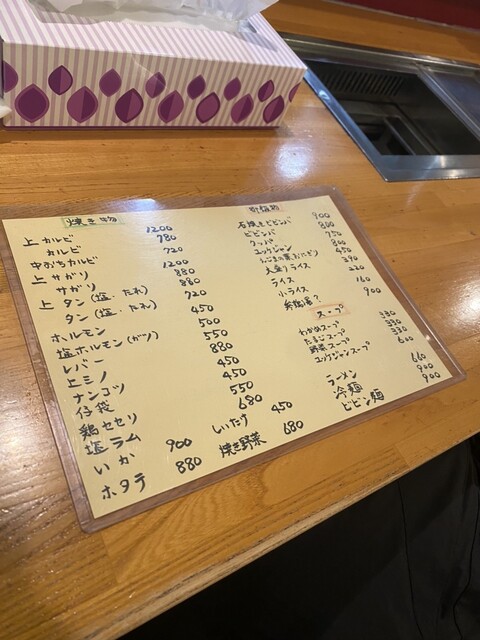 焼き物
上カルビ 1200
カルビ 980
中おちカルビ 720
上サガリ 1200
サガリ 880
上タン(塩・たれ) 880
タン(塩・たれ) 720
ホルモン 450
塩ホルモン(ガツ) 500
レバー 550
上ミノ 880
ナンコツ 450
仔袋 450
鶏セセリ 550
塩ラム 680
いか 900
ホタテ 880
しいたけ 450
焼き野菜 680
石焼きビビンバ 900
ビビンバ 800
クッパ
ユッケジャン 800
えごまの葉おにぎり 450
大盛りライス 390
ライス 220
小ライス 160
900
スープ
わかめスープ 330
たまごスープ 330
野菜スープ 330
ユッケジャンスープ 600
ラーメン 660
冷麺 900
ビビン麺 900